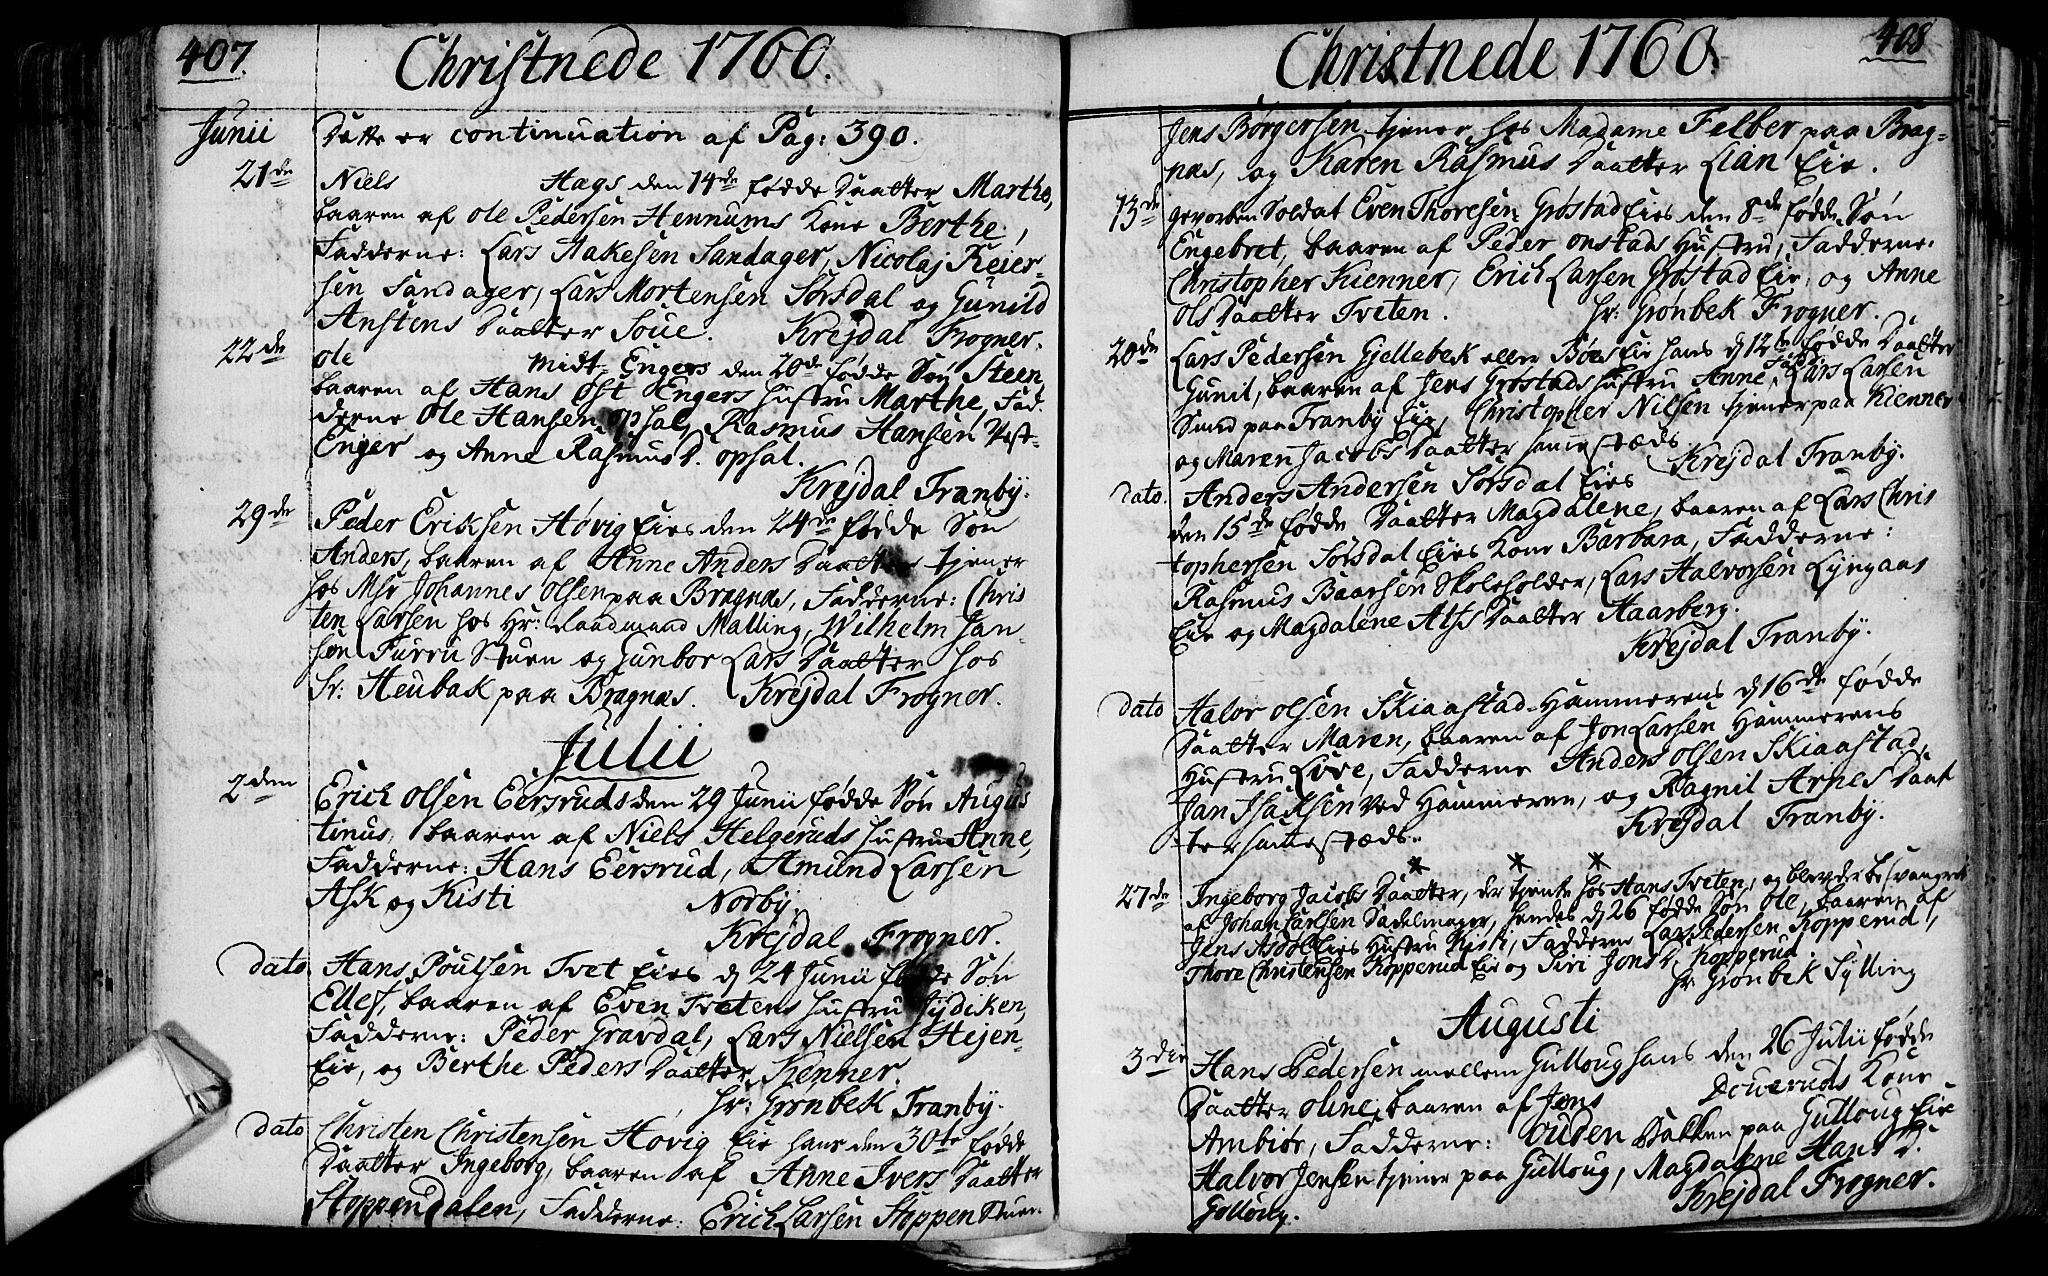 407.
Christnede 1760.
Junii
Dette er continuation af Pag: 390.
21de
Niels Hags den 14de fødde Daatter Marthe,
baaren af Ole Pedersen Hennums Kone Berthe,
Fadderne: Lars Aakesen Sandager, Nicolaj Reier-
sen Sandager, Lars Mortensen Sørsdal og Gunild
Anstens Daatter Soue. Krejdal Frogner.
22de
Ole Midt-Engers den 20de fødde Søn Steen,
baaren af Hans Øst Engers Hustru Marthe, Fad-
derne Ole Hansen Opsal, Rasmus Hansen Vest-
Enger og Anne Rasmus D. Opsal.
Krejdal Tranby.
29de
Peder Eriksen Høvig Eies den 24de fødde Søn
Anders, baaren af Anne Anders Daatter tjener
hos Msr Johannes Olsen paa Bragnæs, Fadderne: Chris
ten Larsen hos Hr: Raadmand Malling, Wilhelm Jan-
sen Furru Stuen og Gunbor Lars Daatter hos
Sr: Heubak paa Bragnæs. Krejdal Frogner.
Julii
2den
Erich Olsen Eersruds den 29 Junii fødde Søn Augus
tinus, baaren af Niels Helgeruds Hustru Anne,
Fadderne: Hans Eersrud, Amund Larsen
Ask og Kisti Norby.
Krejdal Frogner.
dato
Hans Poulsen Tvet Eies d 24 Junii fødde Søn
Ellef, baaren af Even Tvetens Hustru Jydiken,
Fadderne: Peder Gravdal, Lars Nielsen Hejen-
Eie, og Berthe Peders Daatter Kenner.
Hr: Grønbek Tranby.
dato
Christen Christensen Høvig Eie hans den 30te fødde
Daatter Ingeborg, baaren af Anne Ivers Daatter
Stoppendalen, Fadderne: Erich Larsen Stoppen Stuen
408
Christnede 1760.
Jens Børgersen tjener hos Madame Felber paa Brag-
næs, og Karen Rasmus Daatter Lian Eie.
13de
gevorben Soldat Even Thoresen Grøstad Eies den 8de fødde Søn
Engebret, baaren af Peder Onstads Hustru, Fadderne.
Christopher Kienner, Erich Larsen Grøstad Eie, og Anne
Ols Daatter Tveten. Hr: Grønbek Frogner.
20de
Lars Pedersen Gjellebek eller Bøe Eie hans d 12te fødde Daatter
Gunil, baaren af Jens Grøstads Hustru Anne, Fadd: Lars Larsen
Smed paa Tranby Eie, Christopher Nilsen tjener paa Kienner
og Maren Jacobs Daatter sammestæds.
Krejdal Tranby.
dato.
Anders Andersen Sørsdal Eies
den 15de fødde Daatter Magdalene, baaren af Lars Chris
tophersen Sørsdal Eies Kone Barbara, Fadderne:
Rasmus Baarsen Skoleholder, Lars Halvorsen Lyngaas
Eie og Magdalene Alfs Daatter Haarberg.
Krejdal Tranby.
dato
Halvor Olsen Skiaastad-Hammerens d 16de fødde
Daatter Maren, baaren af Jon Larsen Hammerens
Hustru Live, Fadderne Anders Olsen Skiaastad,
Jan Isaksen ved Hammeren, og Ragnil Arnes Daat
ter sammestæds.
Krejdal Tranby.
27de
Ingeborg Jacobs Daatter, der tjente hos Hans Tveten, og blev der besvangret
af Johan Carlsen Sadelmager, hendes d 26 fødde Søn Ole, baaren af
Jens Asdøl Eies Hustru Kisti, Fadderne Lars Pedersen Kopperud,
Thore Christensen Kopperud Eie og Siri Jons D. Kopperud.
Hr Grønbek Sylling
Augusti
3die
Hans Pedersen mellem Gulloug hans den 26 Julii fødde
Daatter Oline, baaren af Jens Doueruds Kone
Ambiør, Fadderne: Ouden Bakken paa Gulloug Eie
Halvor Jensen tjener paa Gulloug, Magdalene Hans D.
Gulloug.
Krejdal Frogner.